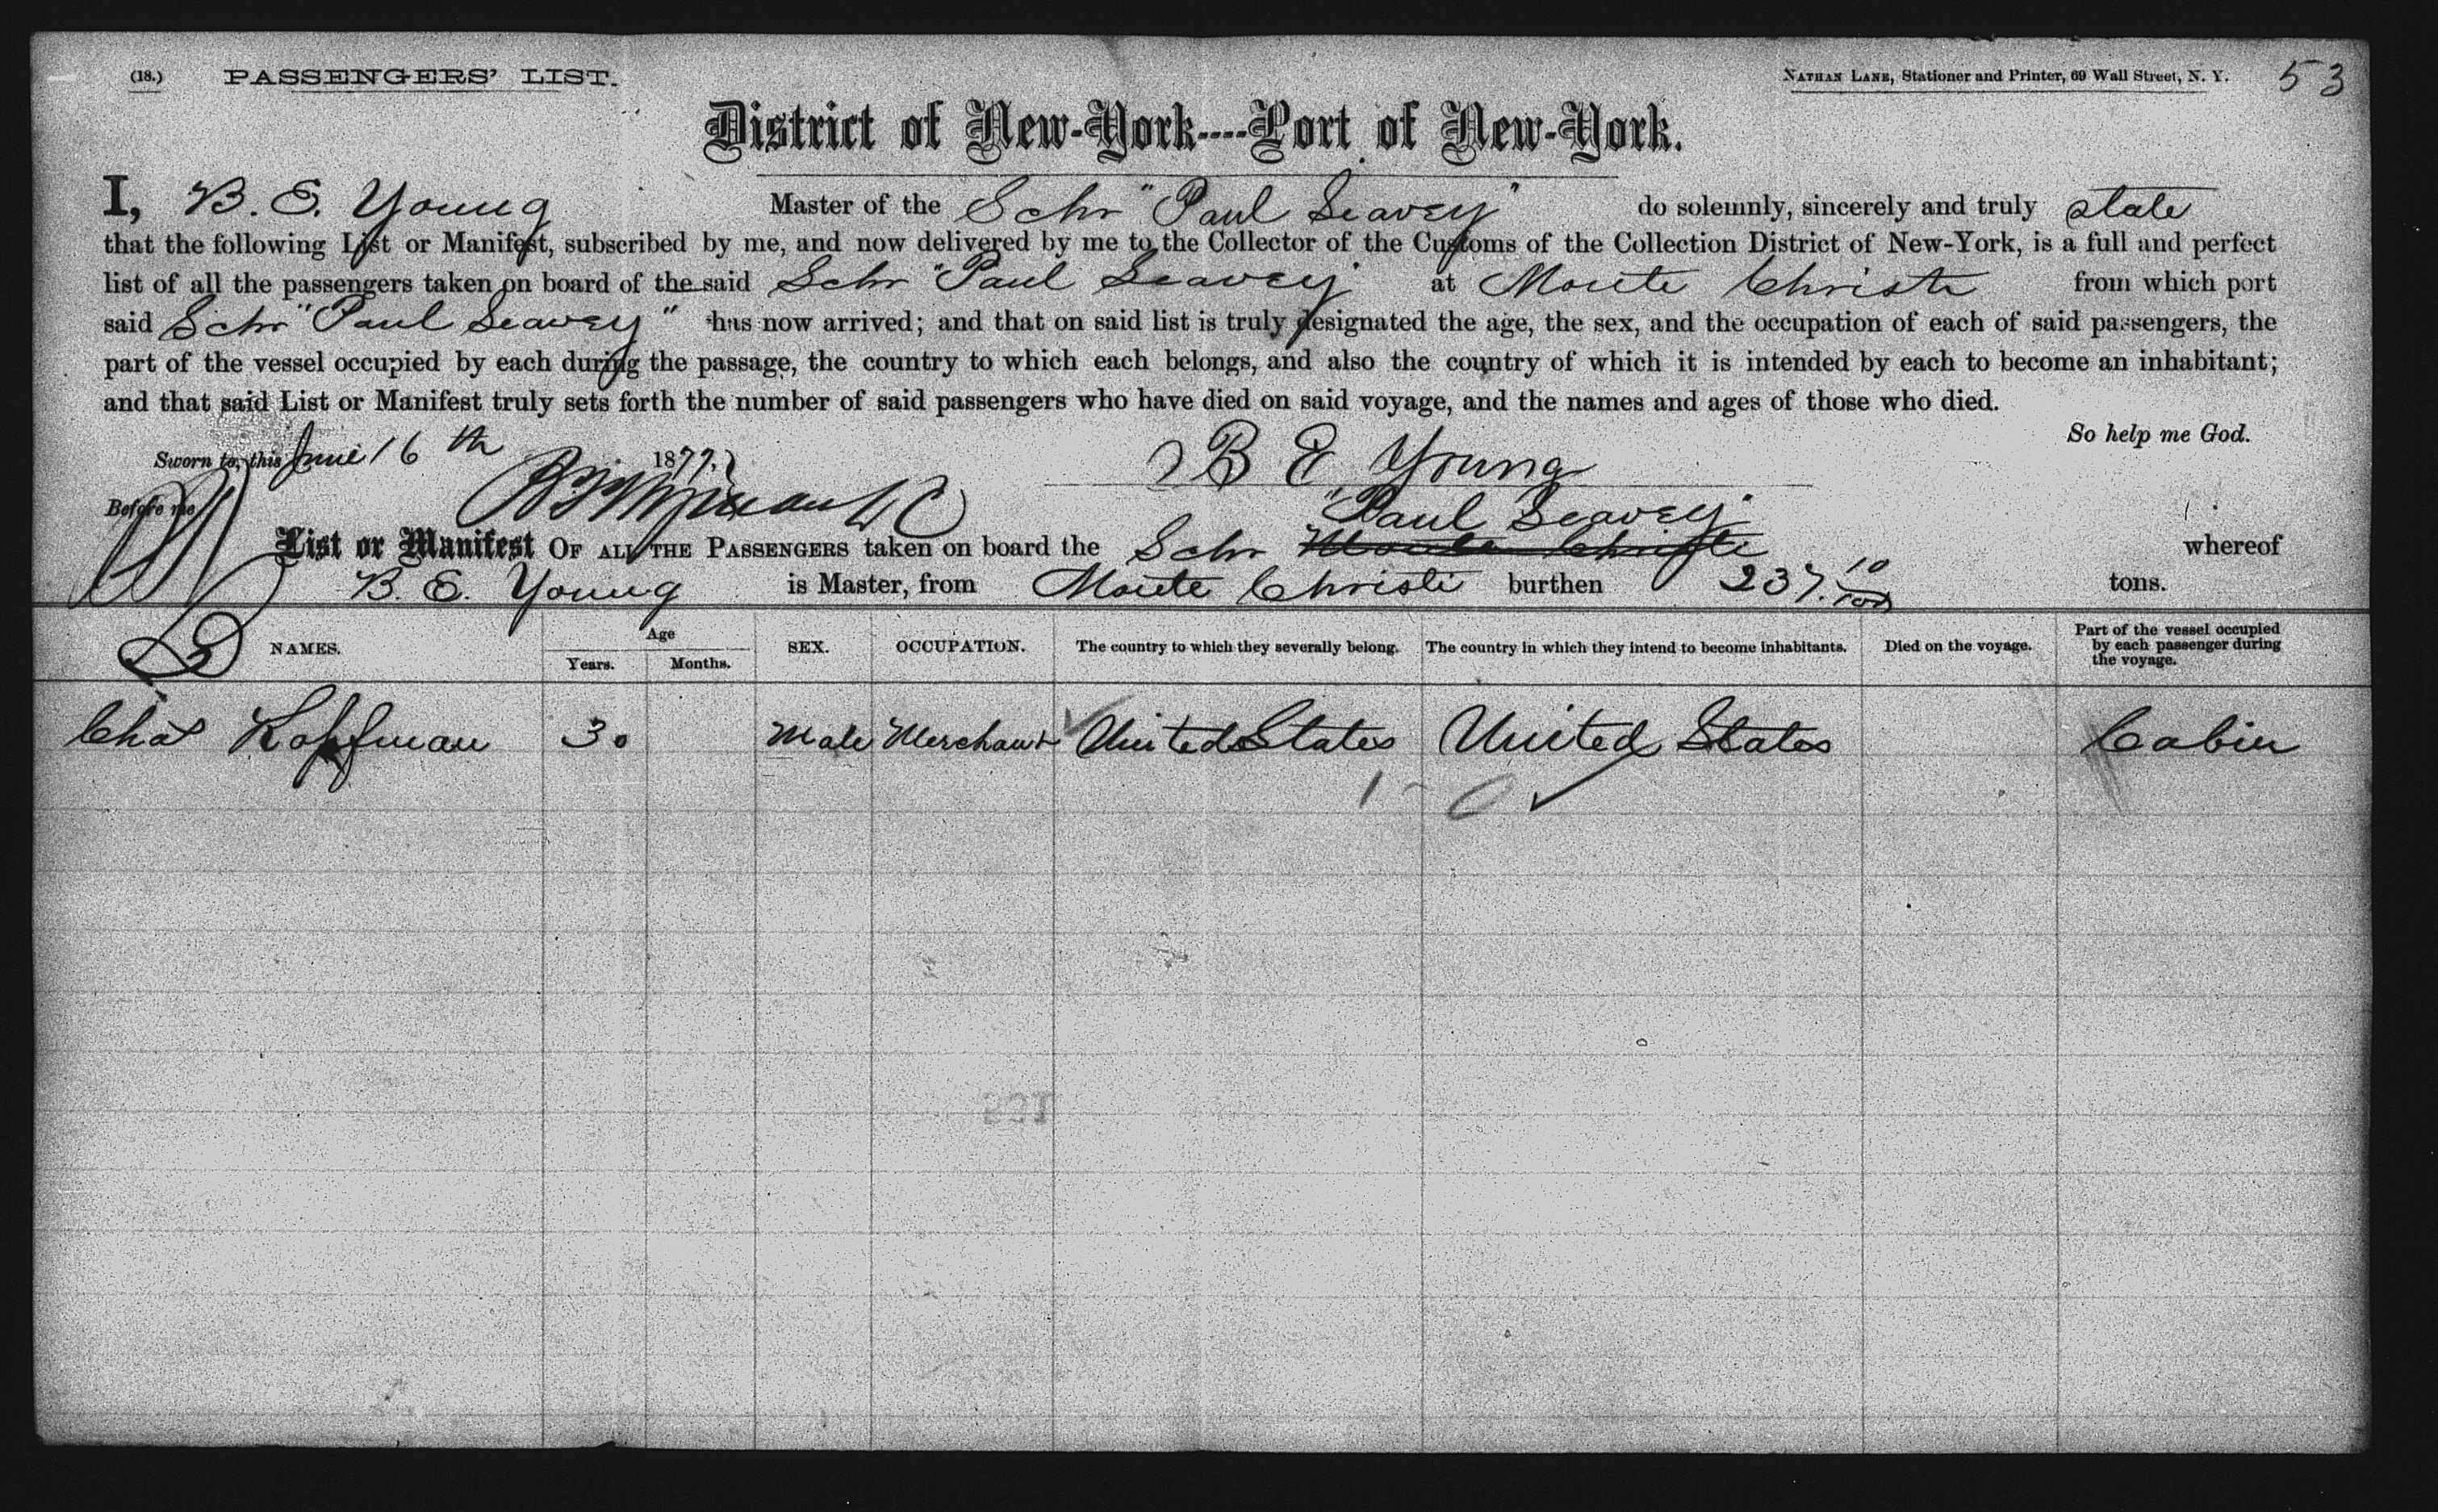 (18.) PASSENGERS' LIST. NATHAN LANE, Stationer and Printer, 69 Wall Street, N. Y. 53
District of New-York----Port of New-York.
I, B. E. Young Master of the Schr "Paul Seavey" do solemnly, sincerely and truly state
that the following List or Manifest, subscribed by me, and now delivered by me to the Collector of the Customs of the Collection District of New-York, is a full and perfect
list of all the passengers taken on board of the said Schr "Paul Seavey" at Monte Christi from which port
said Schr "Paul Seavey" has now arrived; and that on said list is truly designated the age, the sex, and the occupation of each of said passengers, the
part of the vessel occupied by each during the passage, the country to which each belongs, and also the country of which it is intended by each to become an inhabitant;
and that said List or Manifest truly sets forth the number of said passengers who have died on said voyage, and the names and ages of those who died.
So help me God.
Sworn to, this June 16th 1877. B E Young
Before me
"Paul Seavey"
List or Manifest OF ALL THE PASSENGERS taken on board the Schr Monte Christi whereof
B. E. Young is Master, from Monte Christi burthen 237. 10/100 tons.
NAMES. Age Years. Months. SEX. OCCUPATION. The country to which they severally belong. The country in which they intend to become inhabitants. Died on the voyage. Part of the vessel occupied by each passenger during the voyage.
Chas Koffman 30 Male Merchant United States United States Cabin
1 - 0 ✓